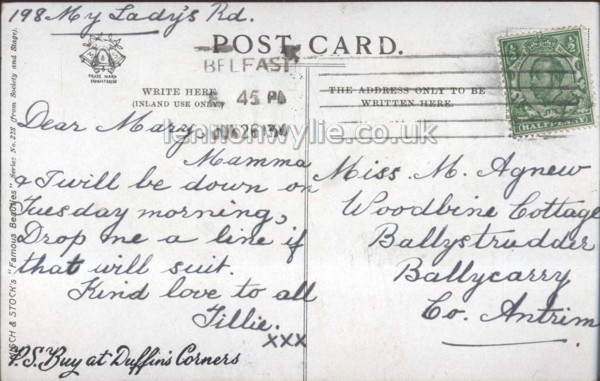 198 My Lady's Rd.
POST CARD.
TRADE MARK
BELFAST
5. 45 PM
WRITE HERE
(INLAND USE ONLY)
THE ADDRESS ONLY TO BE
WRITTEN HERE.
HALFPENNY
lennonwylie.co.uk
Dear Mary,
Mamma
& I will be down on
Tuesday morning,
Drop me a line if
that will suit.
Kind love to all
Tillie.
xxx
P.S. Buy at Duffin's Corners
Miss. M. Agnew
Woodbine Cottage
Ballystrudder
Ballycarry
Co. Antrim
& STOCK'S "Famous Beauties" Series No. 228 (from Society and Stage).